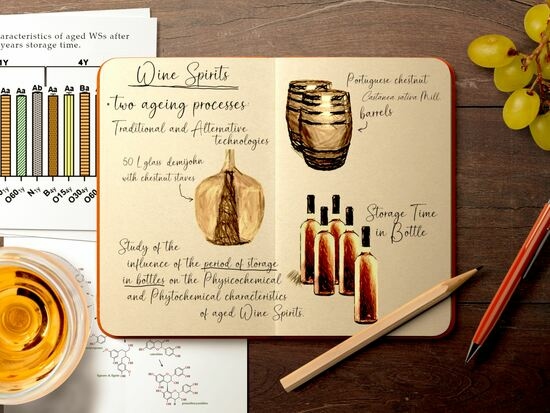 aracteristics of aged WSs after
years storage time.
1Y
4Y
Aa Aa Ab Aa Ba Aa
O60 1y N 1y B 4y O15 4y O30 4y O60
Wine Spirits
• two ageing processes
Traditional and Alternative
technologies
50 L glass demijohn
with chestnut staves
Study of the
influence of the period of storage
in bottles on the Physicochemical
and Phytochemical characteristics
of aged Wine Spirits.
Portuguese chestnut
Castanea sativa Mill.
barrels
Storage Time
in Bottle